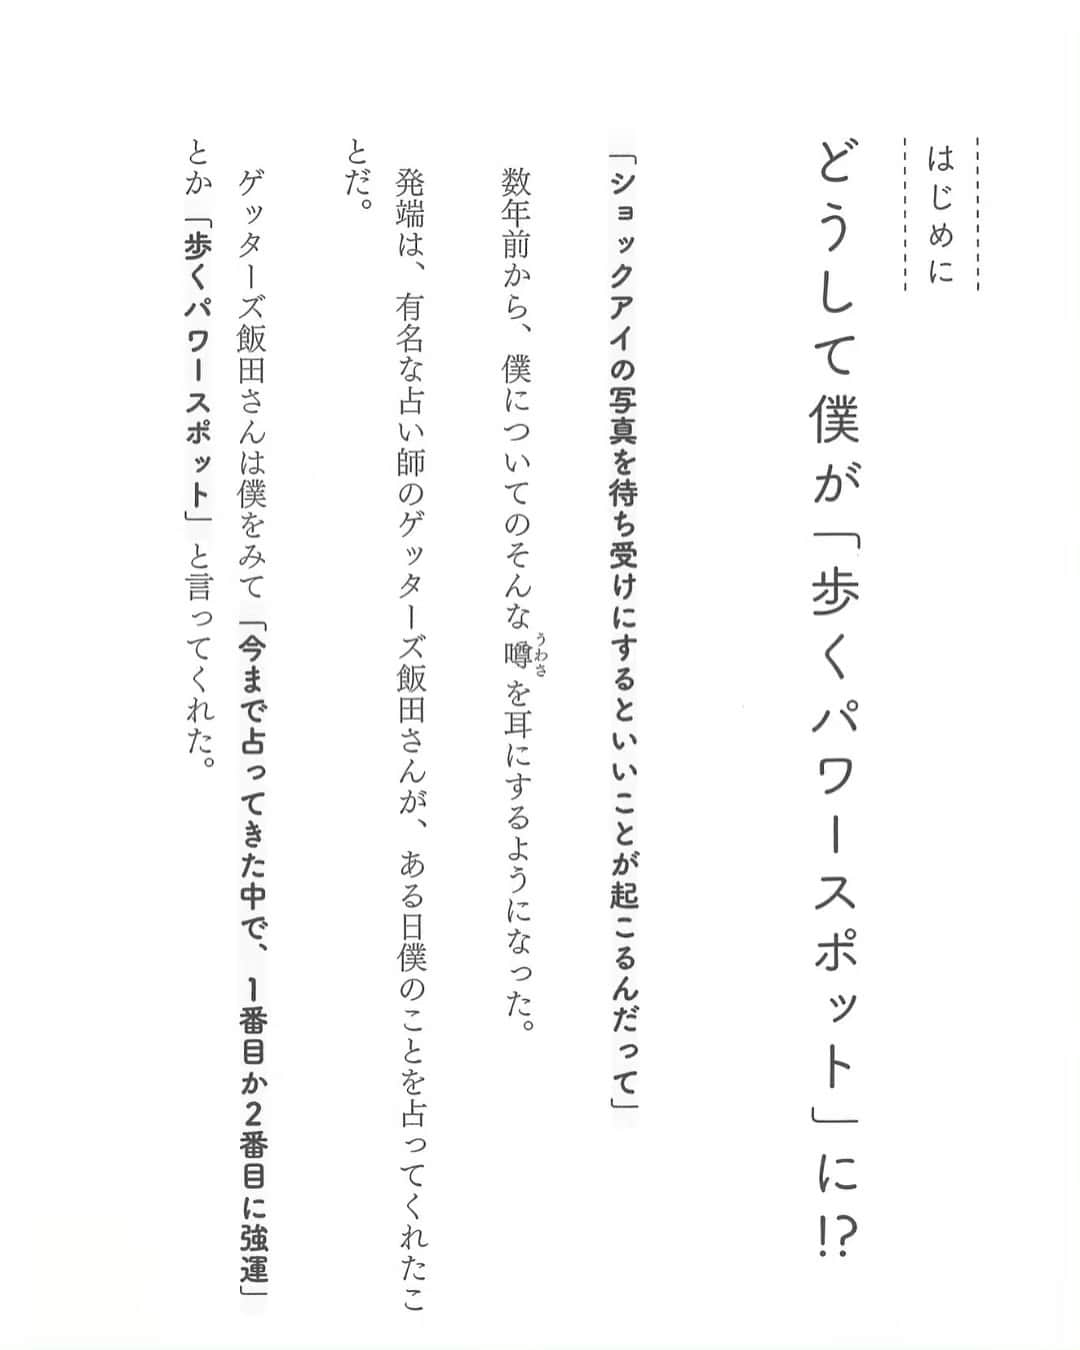 はじめに
どうして僕が「歩くパワースポット」に!?
「ショックアイの写真を待ち受けにするといいことが起こるんだって」
数年前から、僕についてのそんな噂を耳にするようになった。
うわさ
発端は、有名な占い師のゲッターズ飯田さんが、ある日僕のことを占ってくれたこ
とだ。
ゲッターズ飯田さんは僕をみて「今まで占ってきた中で、1番目か2番目に強運」
とか「歩くパワースポット」と言ってくれた。